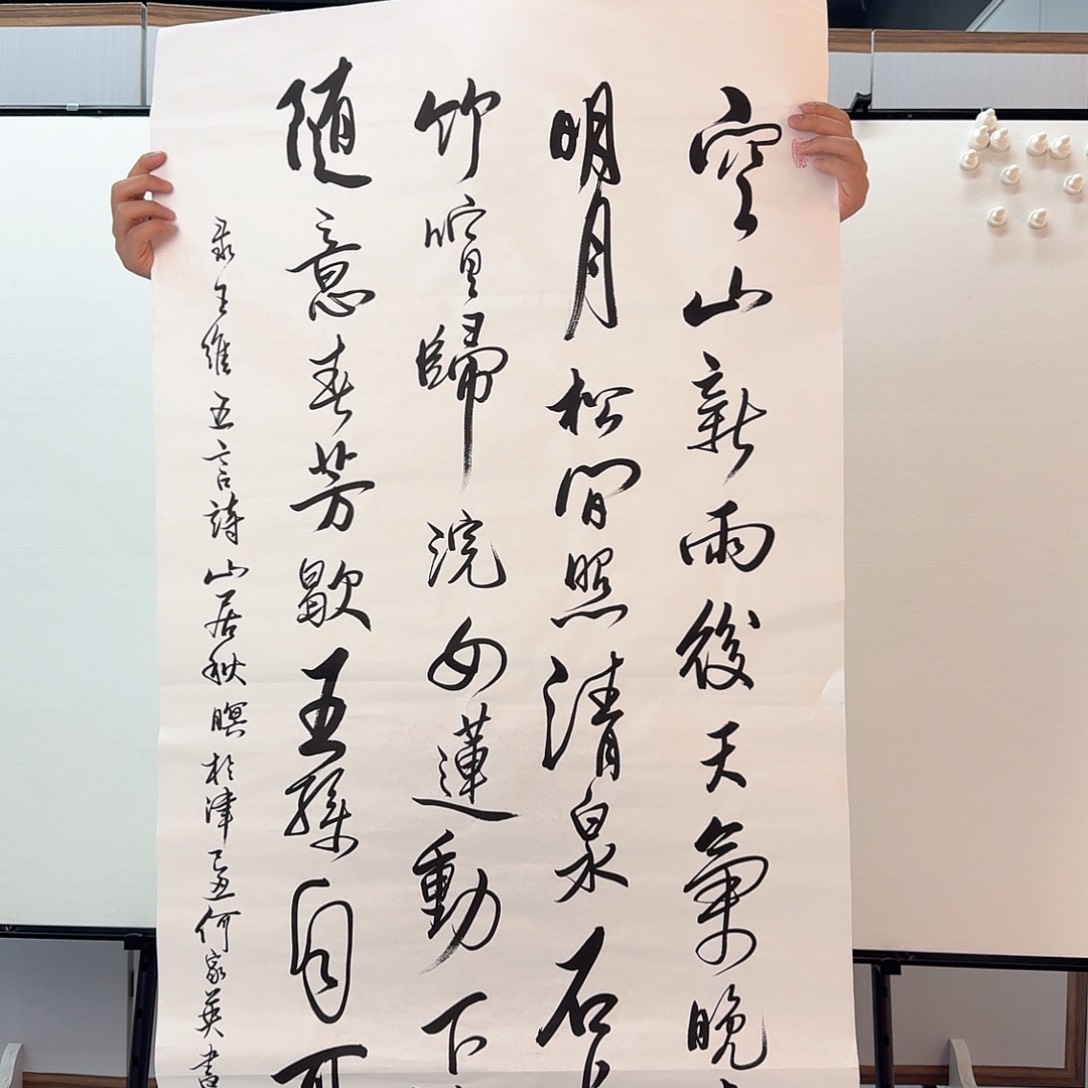 空山新雨後天氣晚
明月松間照清泉石
竹喧歸浣女蓮動下
随意春芳歇王孫自可
录王維五言詩山居秋暝於津何家英書